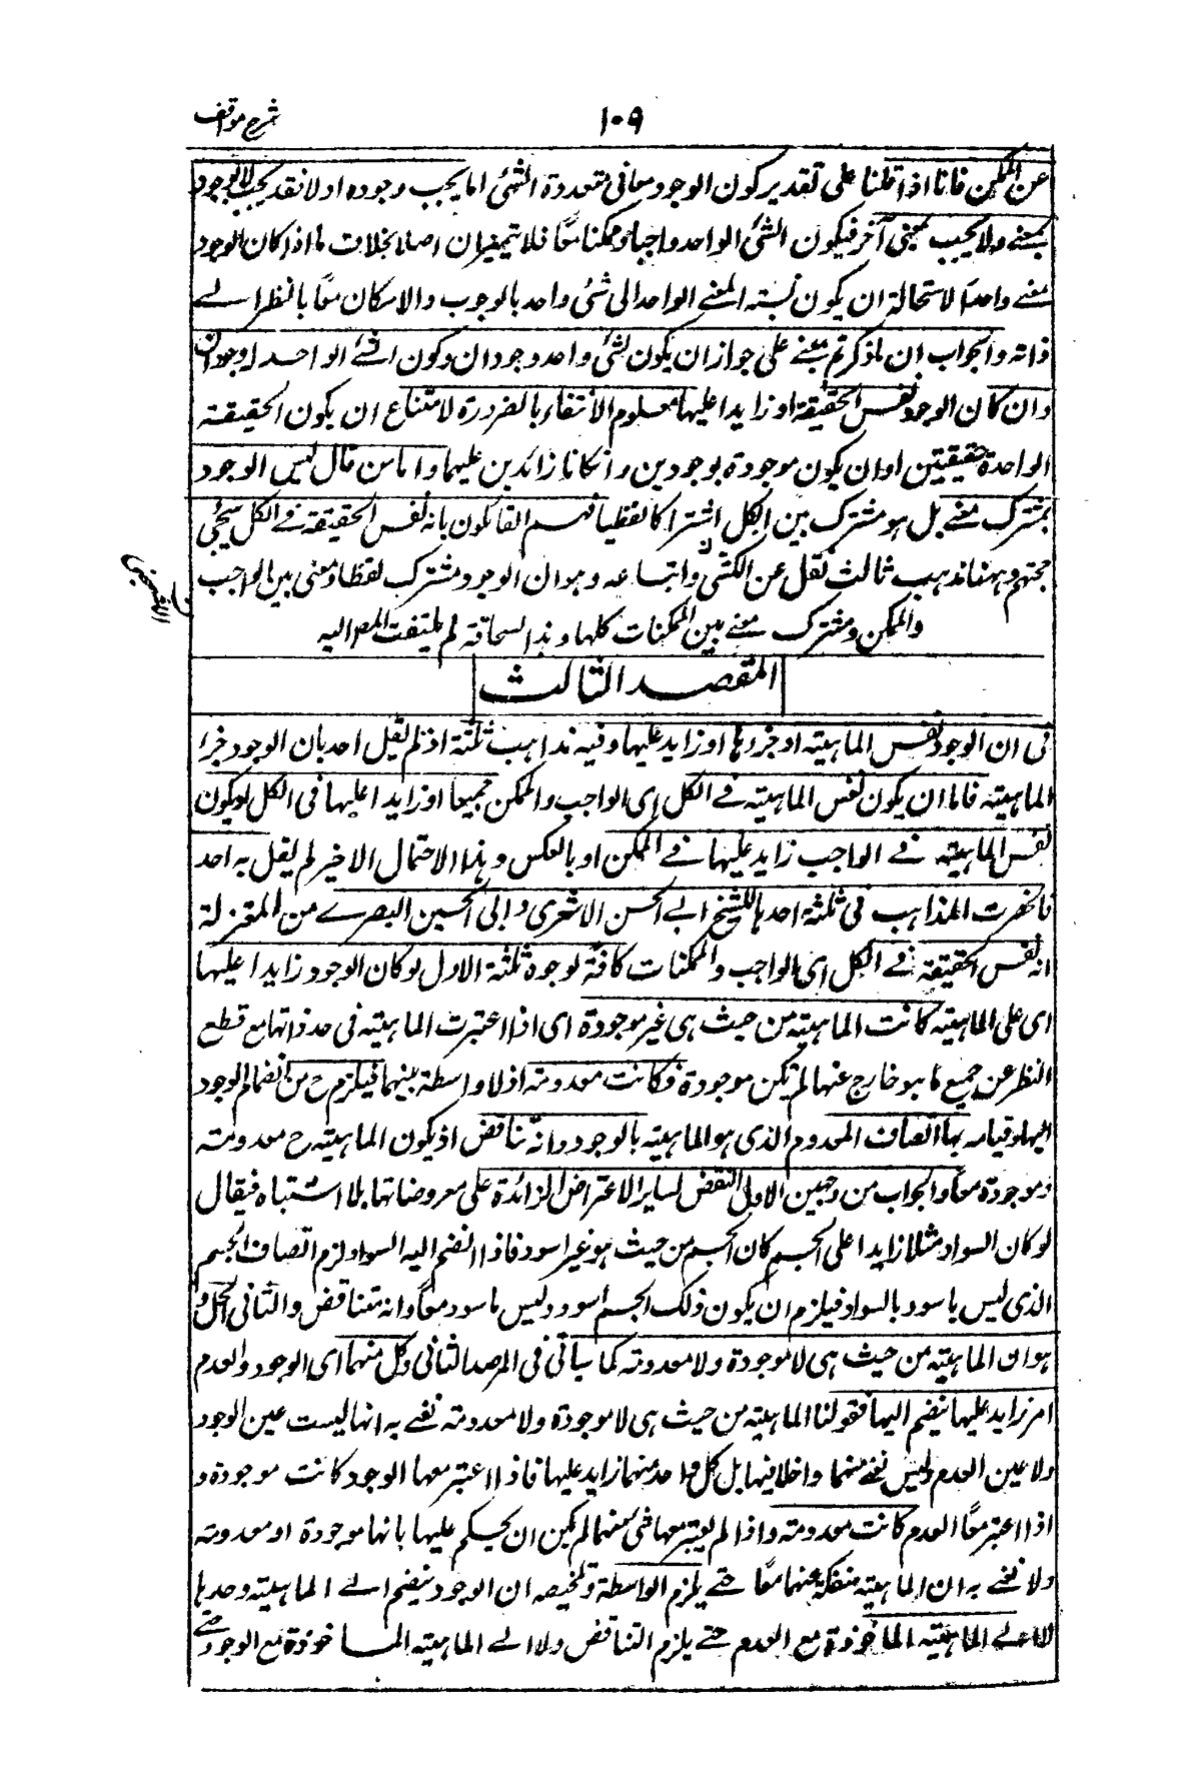 شرح مواقف
١٠٩
عن الممكن فانا اذا قلنا على تقدير كون الوجود معانى متعددة الشئ اما يجب وجوده او لا فقد يجب له الوجود
بمعنے ولا يجب بمعنى آخر فيكون الشئ الواحد واجبا وممكنا معًا فلا يتميزان اصلا بخلاف ما اذا كان الوجود
معنے واحدًا لاستحالة ان يكون نسبته المعنے الواحد الى شئ واحد بالوجوب والامكان معًا بالنظر الے
ذاته والجواب ان ما ذكرتم مبنے على جواز ان يكون لشئ واحد وجودان وكون الشئ الواحد له وجودان
وان كان الوجود نفس الحقيقة او زايدا عليها معلوم الانتفاء بالضرورة لامتناع ان يكون الحقيقته
الواحدة حقيقتين او ان يكون موجودة بوجودين وانكانا زائدين عليها واما من قال ليس الوجود
بمشترك معنے بل هو مشترك بين الكل اشتراكا لفظيا فهم القائلون بانه نفس الحقيقة فے الكل سيجئ
حجتهم وههنا مذهب ثالث نقل عن الكشى واتباعه وهو ان الوجود مشترك لفظا ومعنى بين الواجب
والممكن ومشترك معنے بين الممكنات كلها وهذا لسخافته لم يلتفت المصـ اليه
المقصد الثالث
فى ان الوجود نفس الماهيته او جزؤها او زايد عليها وفيه مذاهب ثلثة اذ لم يقل احد بان الوجود جزا
الماهيته فاما ان يكون نفس الماهيته فے الكل اى الواجب والممكن جميعا او زايدا عليها فى الكل او يكون
نفس الماهيته فے الواجب زايد عليها فے الممكن او بالعكس وهذا الاحتمال الاخير لم يقل به احد
فانحصرت المذاهب فى ثلثة احدها للشيخ ابے الحسن الاشعرى وابى الحسين البصرے من المعتزلة
انه نفس الحقيقة فے الكل اى الواجب والممكنات كافة لوجوه ثلثة الاول لو كان الوجود زايدا عليها
اى على الماهيته كانت الماهيته من حيث هى غير موجودة اى اذا اعتبرت الماهيته فى حد ذاتها مع قطع
النظر عن جميع ما هو خارج عنها لم تكن موجودة فكانت معدومته اذ لا واسطة بينهما فيلزم ح من انضمام الوجود
اليها وقيامه بها اتصاف المعدوم الذى هو الماهيته بالوجود وانه تناقض اذ يكون الماهيته ح معدومته
وموجودة معًا والجواب من وجهين الاول النقض بساير الاعتراض الزائدة على معروضاتها بلا اشتباه فيقال
لو كان السواد مثلا زايدا على الجسم كان الجسم من حيث هو غير اسود فاذا انضم اليه السواد لزم اتصاف الجسم
الذى ليس باسود بالسواد فيلزم ان يكون ذلك الجسم اسود وليس باسود معًا وانه تناقض والثانى الحل و
هو ان الماهيته من حيث هى لا موجودة ولا معدومته كما سيأتى فى المرصد الثانى وكل منهما اى الوجود والعدم
امر زايد عليها ينضم اليها فقولنا الماهيته من حيث هى لا موجودة ولا معدومته نعنے به انها ليست عين الوجود
ولا عين العدم وليس شئ منهما داخلا فيها بل كل واحد منهما زايد عليها فاذا اعتبر معها الوجود كانت موجودة و
اذا اعتبر معها العدم كانت معدومته واذا لم يعتبر معها شئ منهما لم يمكن ان يحكم عليها بانها موجودة او معدومته
ولا نعنے به ان الماهيته منفكة عنهما معًا حتے يلزم الواسطة وتلخيصه ان الوجود ينضم الے الماهيته وحدها
لا الے الماهيته الماخوذة مع العدم حتے يلزم التناقض ولا الے الماهيته الماخوذة مع الوجود حتے